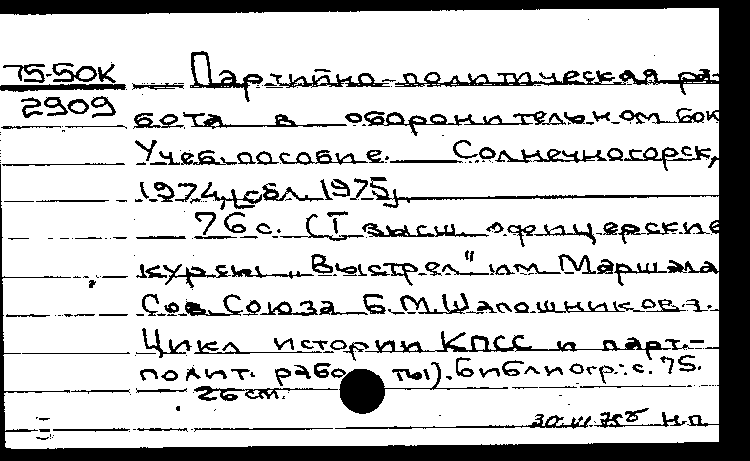 75-50К
2909
Партийно-политическая ра-
бота в оборонительном бою
Учеб. пособие. Солнечногорск,
1974, [обл. 1975].
76 с. (I высш. офицерские
курсы „Выстрел" им Маршала
Сов. Союза Б.М. Шапошникова.
Цикл истории КПСС и парт.-
полит. работы). Библиогр.: с. 75.
26 см.
30.VI.75 Н.П.